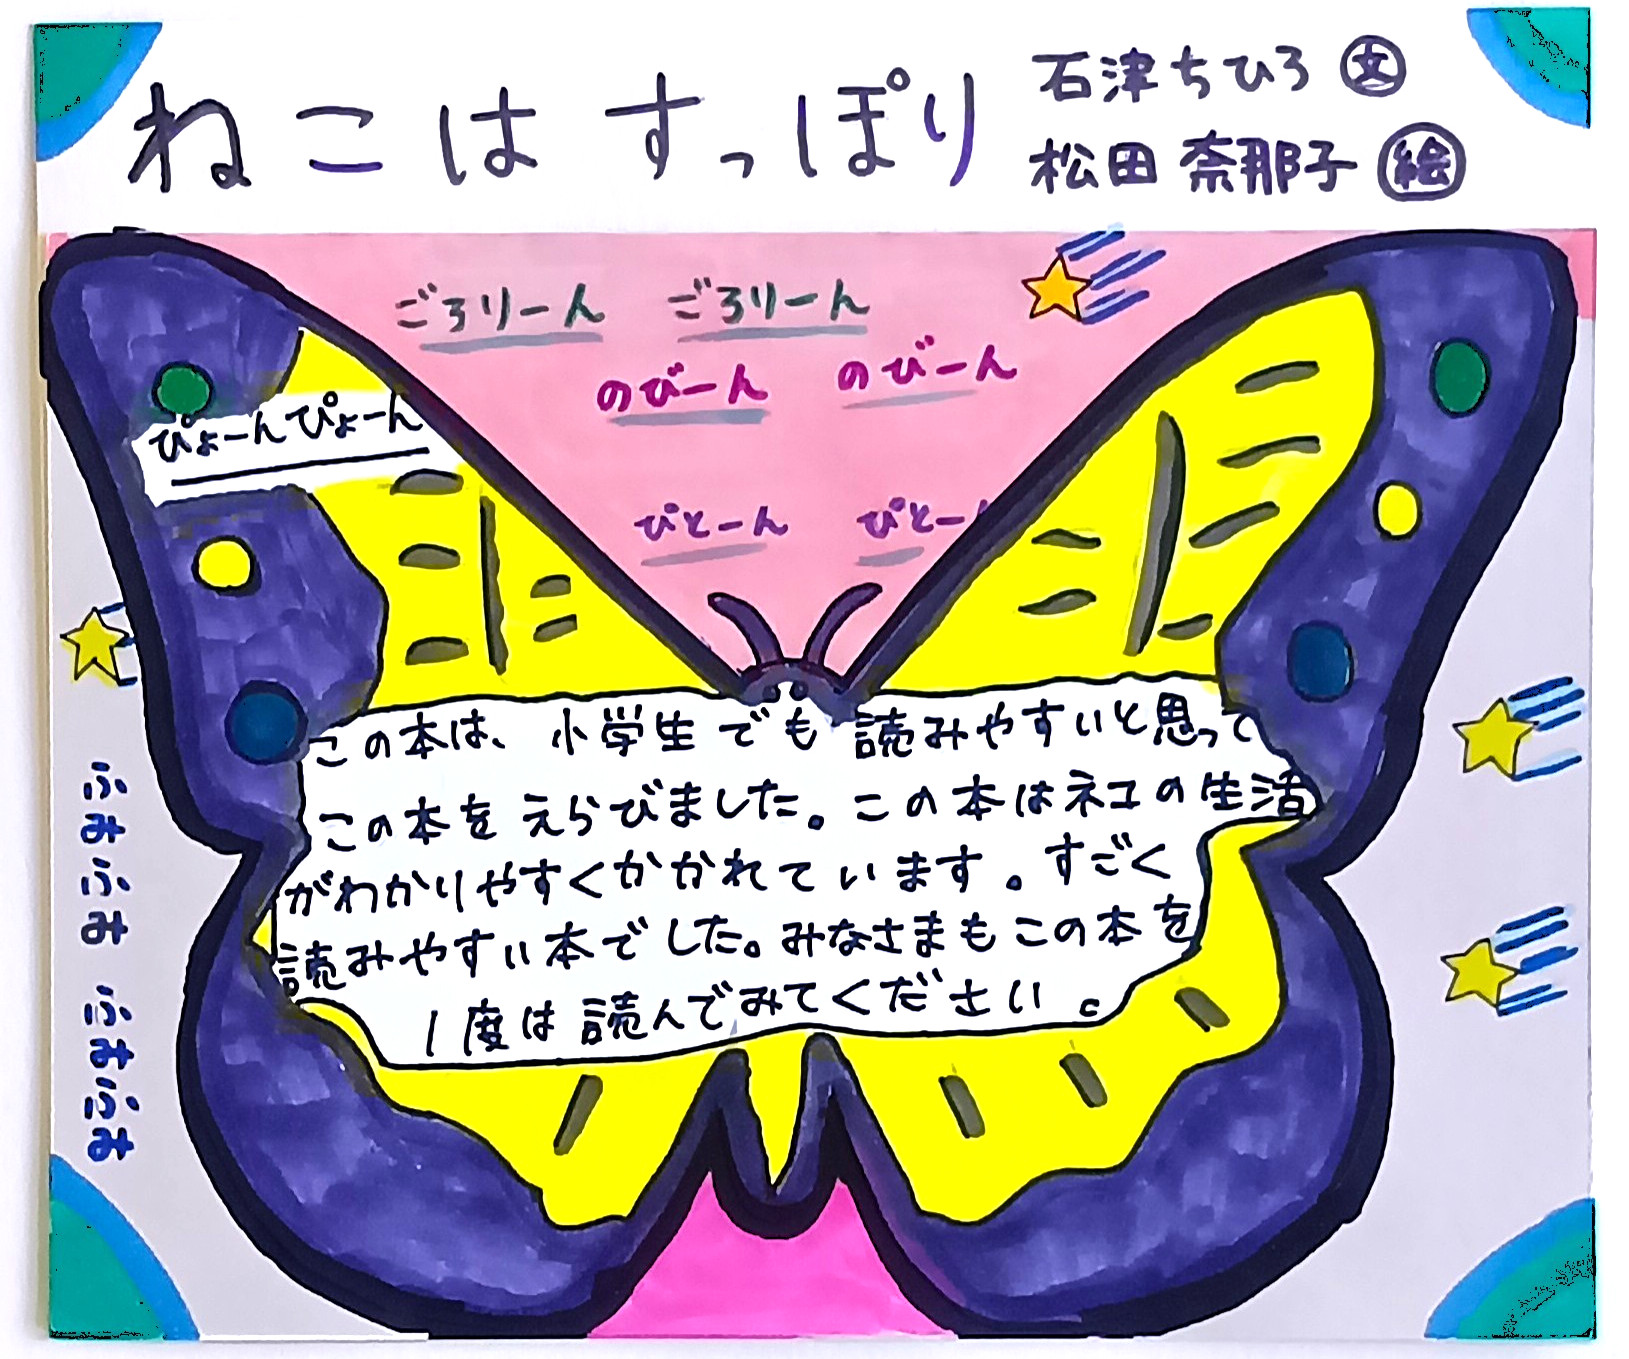 ねこは すっぽり
石津ちひろ 文
松田奈那子 絵
ごろりーん ごろりーん
のびーん のびーん
ぴょーんぴょーん
ぴとーん ぴとーん
この本は、小学生でも読みやすいと思って
この本をえらびました。この本はネコの生活
がわかりやすくかかれています。すごく
読みやすい本でした。みなさまもこの本を
1度は読んでみてください。
ふみふみ ふみふみ